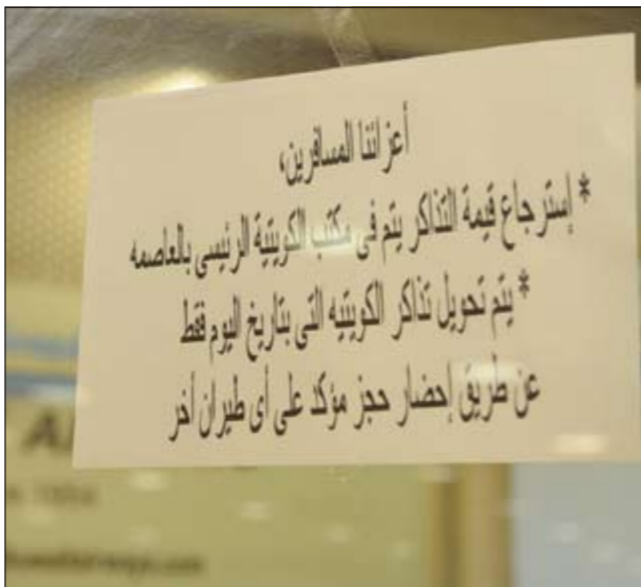 أعزائنا المسافرين،
* إسترجاع قيمة التذاكر يتم فى مكتب الكويتية الرئيسى بالعاصمه
* يتم تحويل تذاكر الكويتيه التى بتاريخ اليوم فقط
عن طريق إحضار حجز مؤكد على أى طيران أخر